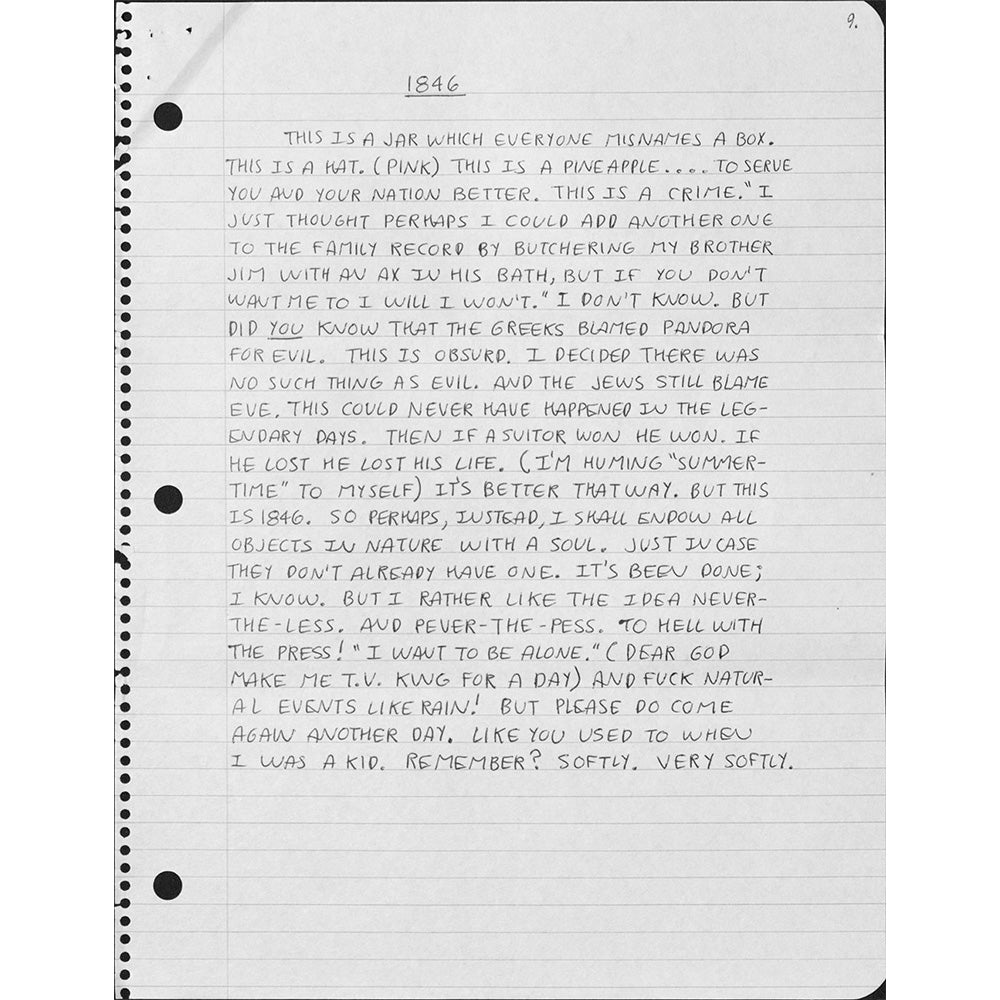 9.
1846
THIS IS A JAR WHICH EVERYONE MISNAMES A BOX.
THIS IS A HAT. (PINK) THIS IS A PINEAPPLE.... TO SERVE
YOU AND YOUR NATION BETTER. THIS IS A CRIME. "I
JUST THOUGHT PERHAPS I COULD ADD ANOTHER ONE
TO THE FAMILY RECORD BY BUTCHERING MY BROTHER
JIM WITH AN AX IN HIS BATH, BUT IF YOU DON'T
WANT ME TO I WILL I WON'T." I DON'T KNOW. BUT
DID YOU KNOW THAT THE GREEKS BLAMED PANDORA
FOR EVIL. THIS IS OBSURD. I DECIDED THERE WAS
NO SUCH THING AS EVIL. AND THE JEWS STILL BLAME
EVE. THIS COULD NEVER HAVE HAPPENED IN THE LEG-
ENDARY DAYS. THEN IF A SUITOR WON HE WON. IF
HE LOST HE LOST HIS LIFE. (I'M HUMING "SUMMER-
TIME" TO MYSELF) IT'S BETTER THAT WAY. BUT THIS
IS 1846. SO PERHAPS, INSTEAD, I SHALL ENDOW ALL
OBJECTS IN NATURE WITH A SOUL. JUST IN CASE
THEY DON'T ALREADY HAVE ONE. IT'S BEEN DONE;
I KNOW. BUT I RATHER LIKE THE IDEA NEVER-
THE-LESS. AND PEVER-THE-PESS. TO HELL WITH
THE PRESS! "I WANT TO BE ALONE." (DEAR GOD
MAKE ME T.V. KING FOR A DAY) AND FUCK NATUR-
AL EVENTS LIKE RAIN! BUT PLEASE DO COME
AGAIN ANOTHER DAY. LIKE YOU USED TO WHEN
I WAS A KID. REMEMBER? SOFTLY. VERY SOFTLY.